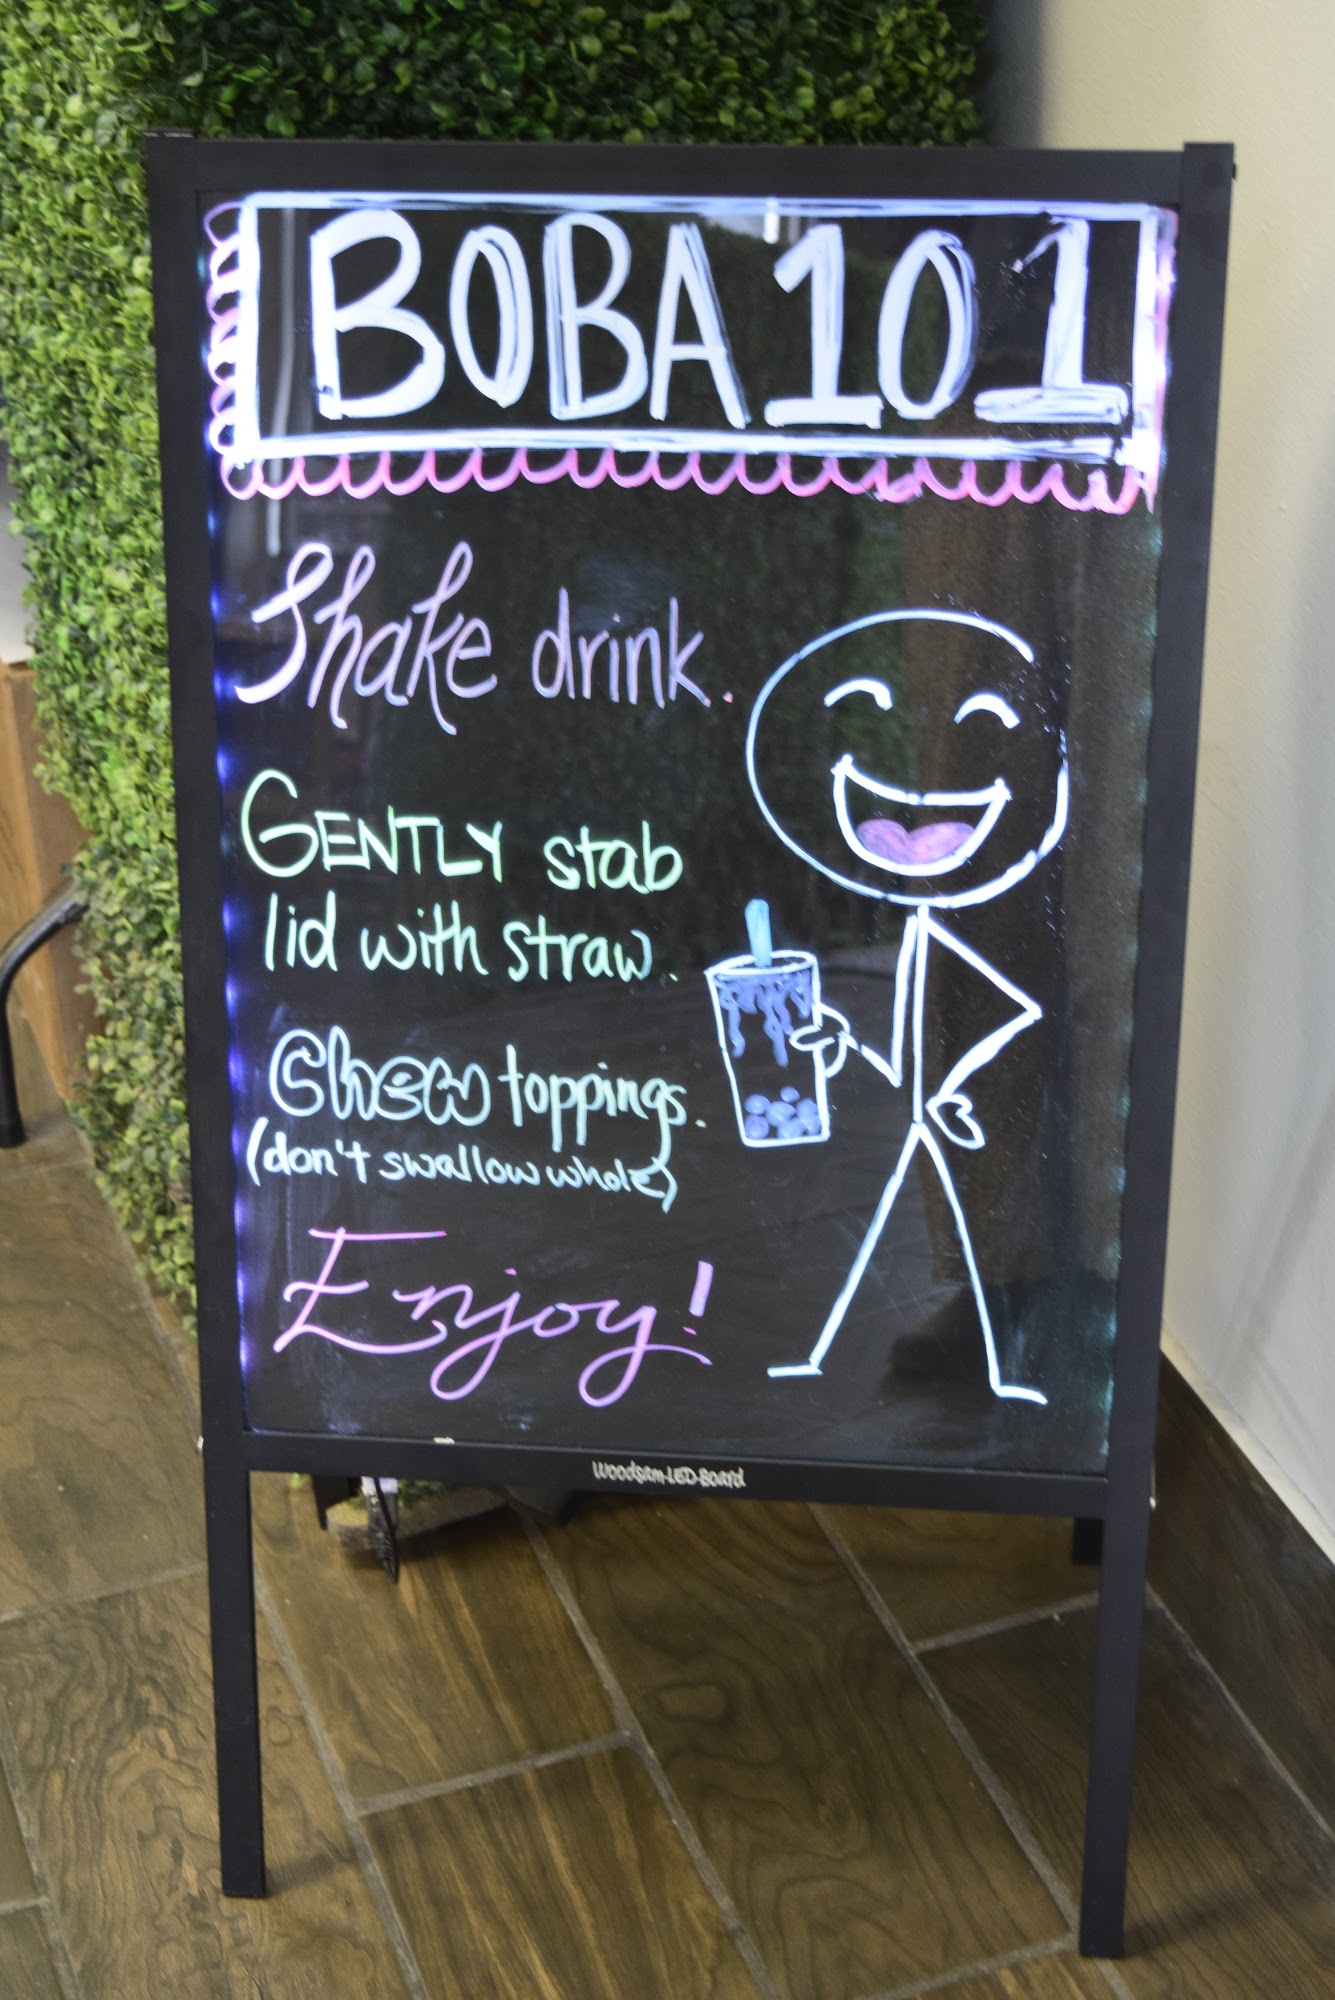 BOBA 101
Shake drink.
GENTLY stab
lid with straw.
Chew toppings.
(don't swallow whole)
Enjoy!
Woodsam-LED-Board